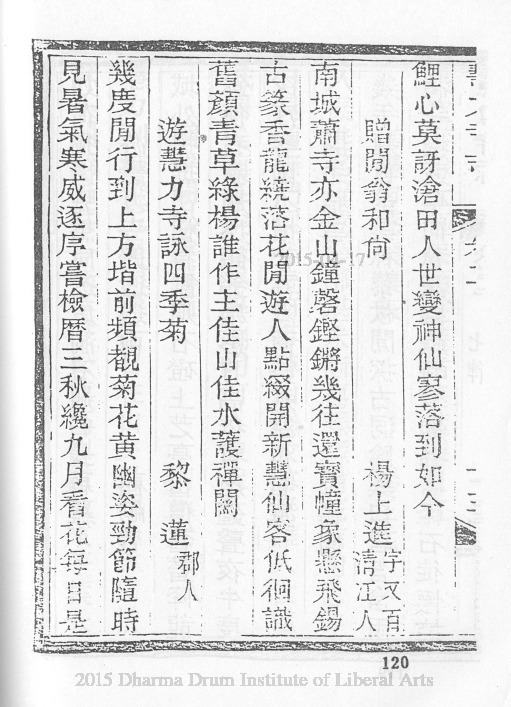 鯉心莫訝滄田人世變神仙寥落到如今
贈閒翁和尚 楊上進 字又百清江人
南城蕭寺亦金山鐘磬鏗鏘幾往還寶幢象懸飛錫
古篆香龍繞落花閒遊人點綴開新慧仙客低徊識
舊顏青草綠楊誰作主佳山佳水護禪關
遊慧力寺詠四季菊 黎蓮 郡人
幾度閒行到上方堦前頻覩菊花黃幽姿勁節隨時
見暑氣寒威逐序嘗檢曆三秋纔九月看花每日是
120
2015 Dharma Drum Institute of Liberal Arts